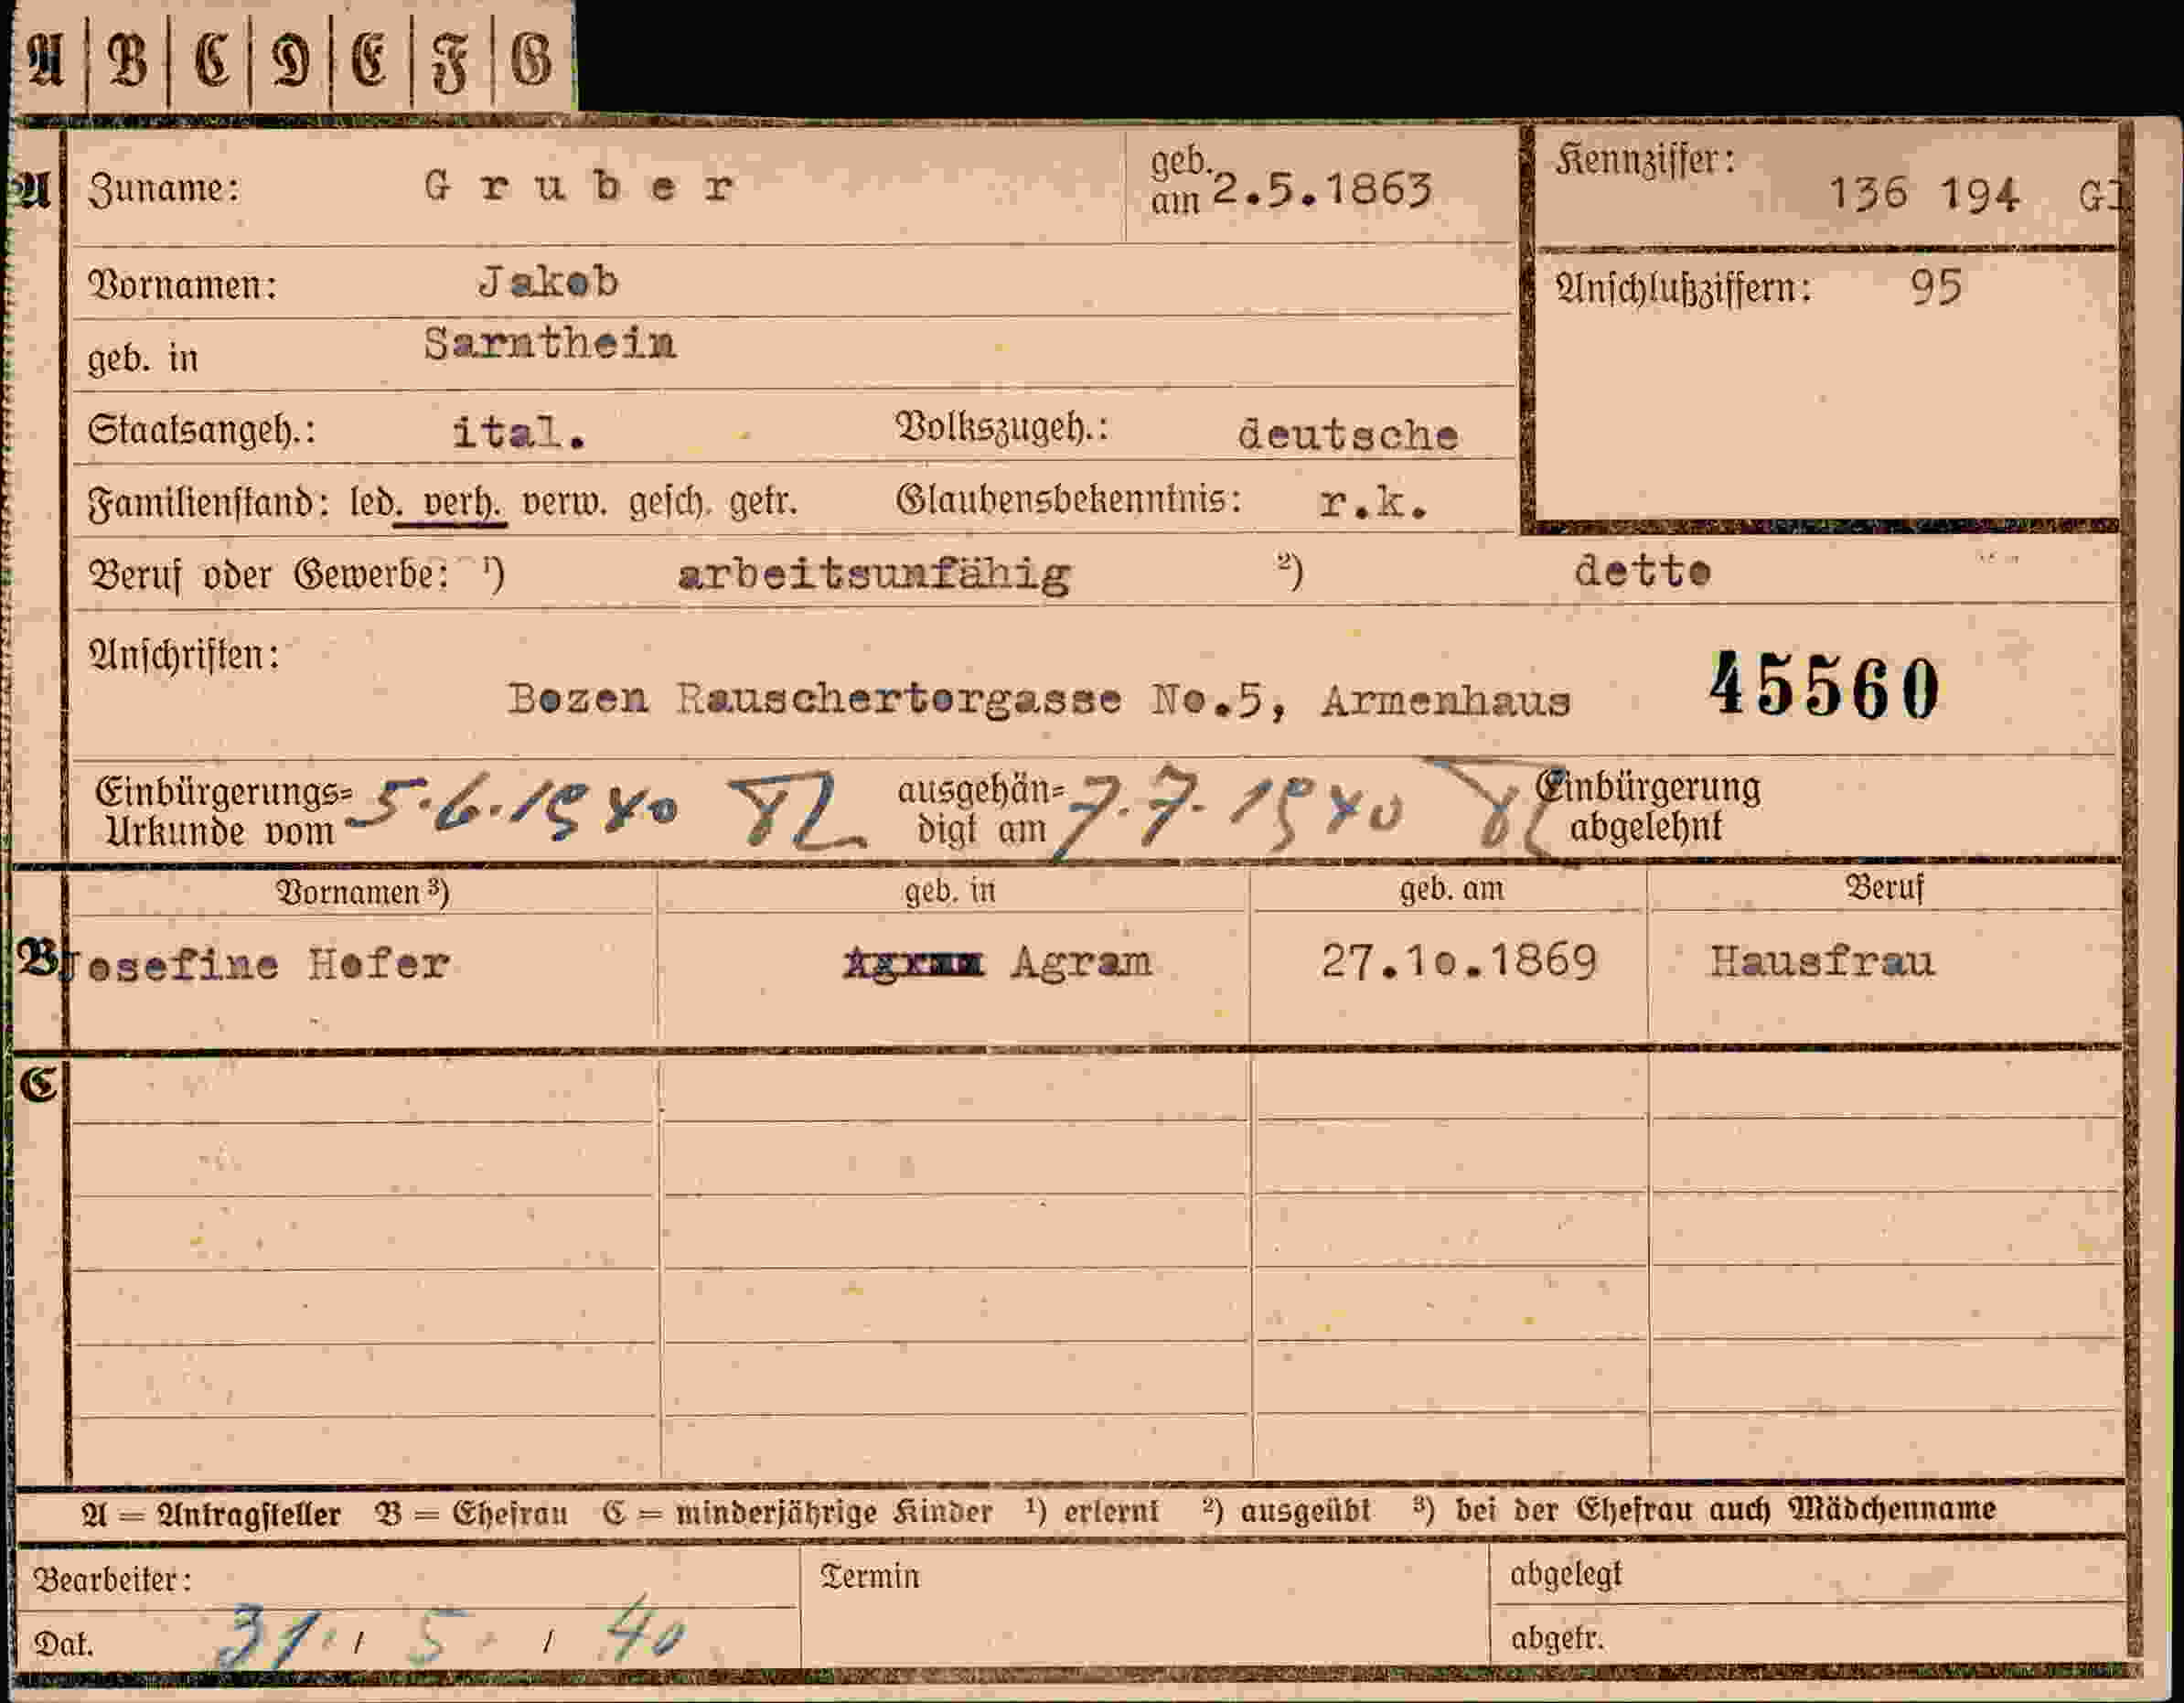 A | B | C | D | E | F | G
A Zuname: Gruber geb. am 2.5.1863 Kennziffer: 136 194 GJ
Vornamen: Jakob Anschlußziffern: 95
geb. in Sarnthein
Staatsangeh.: ital. Volkszugeh.: deutsche
Familienstand: led. verh. verw. gesch. getr. Glaubensbekenntnis: r.k.
Beruf oder Gewerbe: ¹) arbeitsunfähig ²) detto
Anschriften:
Bozen Rauschertorgasse No.5, Armenhaus 45560
Einbürgerungs= Urkunde vom 5.6.1940 ausgehän= digt am 7.7.1940 Einbürgerung abgelehnt
Vornamen ³) geb. in geb. am Beruf
B Josefine Hofer Agram 27.10.1869 Hausfrau
C
A = Antragsteller B = Ehefrau C = minderjährige Kinder ¹) erlernt ²) ausgeübt ³) bei der Ehefrau auch Mädchenname
Bearbeiter: Termin abgelegt
Dat. 31. / 5. / 40 abgetr.